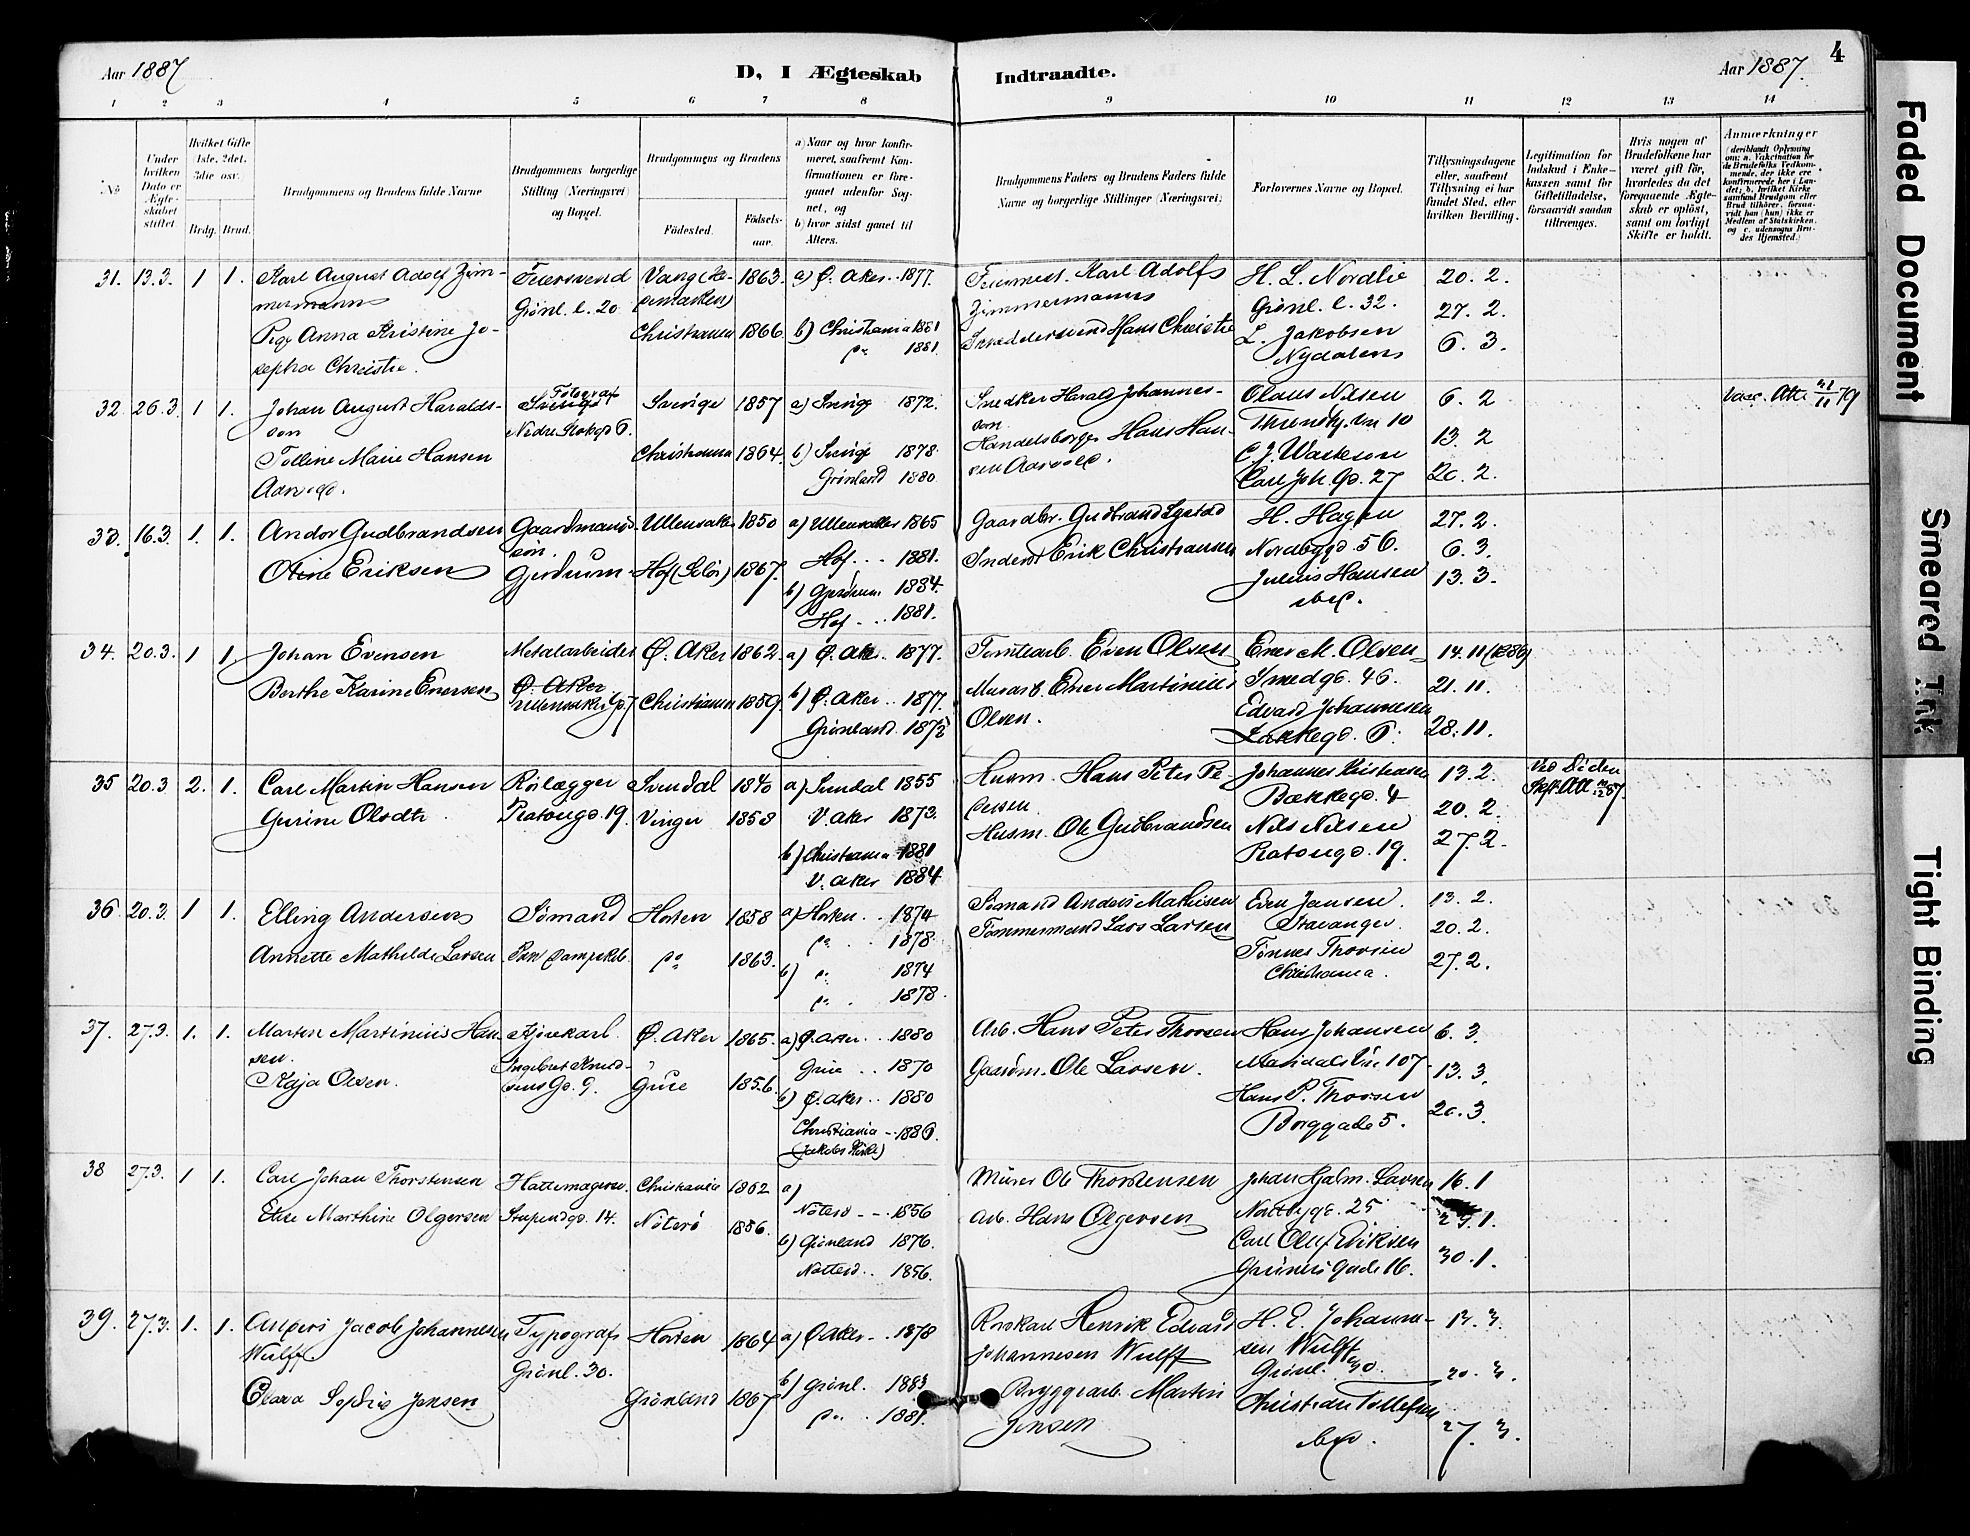 Aar 1887
D, I Ægteskab
Indtraadte.
Aar 1887.
4
1 2 3 4 5 6 7 8
9 10 11 12 13 14
No
Under hvilken Dato er Ægteskabet stiftet.
Hvilket Gifte 1ste, 2det, 3die osv.
Brdg. Brud.
Brudgommens og Brudens fulde Navne
Brudgommens borgerlige Stilling (Næringsvei) og Bopæl.
Brudgommens og Brudens
Fødested.
Fødselsaar.
a) Naar og hvor konfirmeret, saafremt Konfirmationen er foregaaet udenfor Sognet, og
b) hvor sidst gaaet til Alters.
Brudgommens Faders og Brudens Faders fulde Navne og borgerlige Stillinger (Næringsvei)
Forlovernes Navne og Bopæl.
Tillysningsdagene eller, saafremt Tillysning ei har fundet Sted, efter hvilken Bevilling.
Legitimation for Indskud i Enkekassen samt for Giftetilladelse, forsaavidt saadan tiltrænges.
Hvis nogen af Brudefolkene har været gift før, hvorledes da det foregaaende Ægteskab er opløst, samt om lovligt Skifte er holdt.
Anmærkninger
31. 13.3. 1 1. Karl August Adolf Zimmermann
Feiersvend
Grønl. l. 20
Vang (Hedemarken) 1863. a) Ø. Aker .. 1877.
Pige Anna Kristine Josepha Christie.
Christiania 1866. b) Christiania 1881
1881.
Feiermest. Karl Adolf Zimmermann
Skræddersvend Hans Christie
H. L. Nordlie
Grønl. l. 32.
L. Jakobsen
Nydalen
20. 2.
27. 2.
6. 3.
32. 26.3. 1 1. Johan August Haraldsson
Fotograf
Nedre Slotsgd 6.
Sverige 1857 a) Sverige 1872.
Tolline Marie Hansen
Christiania 1864. b) Sverige 1878.
Grønland 1880.
Snedker Harald Johannesson
Handelsborger Hans Hansen Aarvold.
Olaus Nilsen
C. J. Waskson
Carl Joh. Gd. 27
6. 2
13. 2
20. 2.
Vacc. Att. 21/11 79
33. 16.3. 1. 1. Andor Gudbrandsen
Gaardmandssøn.
Gjerdrum
Ullensaker 1850 a) Ullensaker 1865
Hof ... 1881.
Otine Eriksen
Hof (Solør) 1867. b) Gjerdrum 1884.
Hof ... 1881.
Gaardbr. Gudbrand
Inderst Erik Christiansen
H. Hagen
Nordbygd. 56.
Julius Hansen
ibid.
27. 2.
6. 3.
13. 3.
34. 20.3. 1 1. Johan Evensen
Metalarbeider
Ø. Aker
Ullensaker Gd 7
Ø. Aker 1862. a) Ø. Aker .. 1877.
Berthe Karine Enersen
Christiania 1859. b) Ø. Aker .. 1877.
Grønland. 1875
Tomtearb. Even Olsen
Murarb. Ener Martinius Olsen.
Ener M. Olsen
Smedgd. 46.
Edvard Johannesen
Lakkegd. 6.
14. 11 (1886)
21. 11.
28. 11.
35 20.3 2. 1. Carl Martin Hansen
Rørlægger
Platougd. 19.
Svendal 1840 a) Sundal 1855
V. Aker 1873.
Gurine Olsdtr.
Vinger 1858 b) Christiania 1881
V. Aker 1884
Husm. Hans Peter Pedersen
Husm. Ole Gudbrandsen
Johannes Kristiansen
Bakkegd. 4
Nils Nilsen
Platougd. 19.
13. 2.
20. 2.
27. 2.
Ved Døden
Skft. Att.
36. 20.3. 1 1. Elling Andersen
Sømand
Horten 1858 a) Horten .. 1874
do .. 1878.
Annette Mathilde Larsen
do 1863. b) do 1874
do . 1878.
Sømand Anders Mathisen
Tømmermand Lars Larsen
Even Jansen.
Stavanger.
Tønnes Thorsen
Christiania.
13. 2.
20. 2.
27. 2.
37. 27.3. 1. 1. Martin Martinius Hansen.
Kjørekarl.
Ingebret Knudsens Gd. 9.
Ø. Aker 1865. a) Ø. Aker .. 1880
Grue .. 1870
Kaja Olsen.
Grue 1856. b) Ø. Aker .. 1880
Christiania .. 1886.
(Jakobs Kirke)
Arb. Hans Peter Thorsen
Gaardm. Ole Larsen.
Hans Johansen
107
Hans P. Thorsen
Borggade 5.
6. 3.
13. 3.
20. 3.
38 27.3. 1 1. Carl Johan Thorstensen
Hattemagersv.
Stupendgd. 14.
Christiania 1862 a)
Nøterø -- 1856
Elise Marthine Olgersen
Nøterø 1856. b) Grønland 1876.
Nøtterø .. 1856.
Murer Ole Thorstensen
Arb. Hans Olgersen
Johan Hjalm. Larsen
Nordbygd. 25
Carl Oluf Eriksen
Grüners Gade 16.
16. 1
23. 1.
30. 1.
39. 27.3. 1. 1. Anders Jacob Johannesen Wulff
Typograf
Grønl. 30.
Horten 1864 a) Ø Aker -. 1878
Clara Sophie Jensen
Grønland 1867 b) Grønl. 1883
do .. 1881.
Henrik Edvard Johannesen Wulff
Bryggearb. Martin Jensen
H. E. Johannesen Wulff
Grønl. 30.
Christian Tollefsen
ibid.
13. 3.
20. 3.
27. 3.
Faded Document
Smeared Ink
Tight Binding